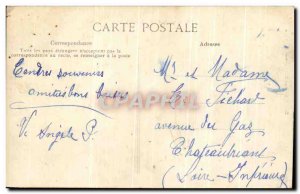 CARTE POSTALE
Correspondance
Tous les pays étrangers n'acceptent pas la
correspondance au recto, se renseigner à la poste
Adresse
Tendres souvenirs
Angèle P.
Mr et Madame
Fichard
avenue du Gaz
Chateaubriant
Loire-Inférieure
CPAPHIL